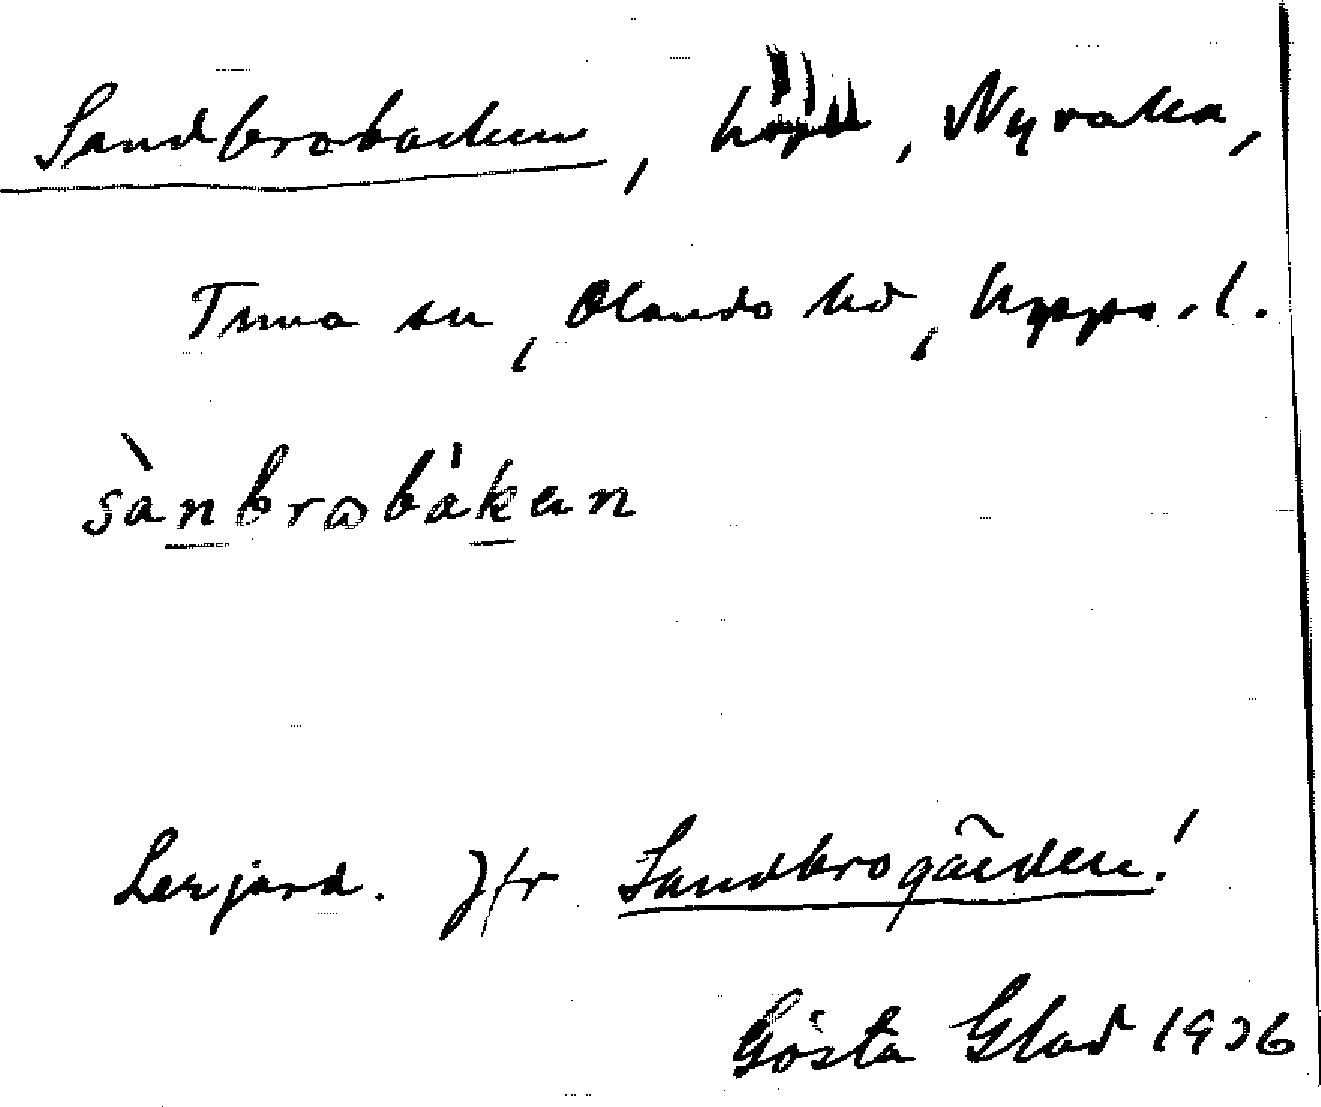 Sandbrobacken, höjd, Nyvalla,
Tuna sn, Olands hd, Upps. l.
sànbrobákan
Lerjord. Jfr Sandbrogården!
Gösta Glad 1936